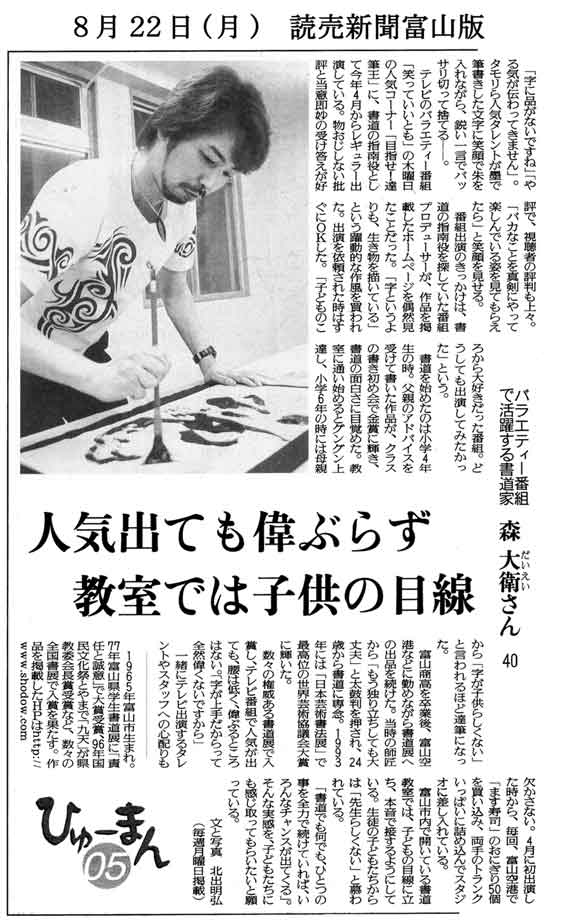 8月22日(月) 読売新聞富山版
「字に品がないですね」「や
る気が伝わってきません」。
タモリら人気タレントが墨で
筆書きした文字に笑顔で朱を
入れながら、鋭い一言でバッ
サリ切って捨てる――。
テレビのバラエティー番組
「笑っていいとも」の木曜日
の人気コーナー「目指せ！達
筆王」に、書道の指南役とし
て今年4月からレギュラー出
演している。物おじしない批
評と当意即妙の受け答えが好
評で、視聴者の評判も上々。
「バカなことを真剣にやって
楽しんでいる姿を見てもらえ
たら」と笑顔を見せる。
番組出演のきっかけは、書
道の指南役を探していた番組
プロデューサーが、作品を掲
載したホームページを偶然見
たことだった。「字というよ
りも、生き物を描いている」
という躍動的な作風を買われ
た。出演を依頼された時はす
ぐにOKした。「子どものこ
ろから大好きだった番組。ど
うしても出演してみたかっ
た」という。
書道を始めたのは小学4年
生の時。父親のアドバイスを
受けて書いた作品が、クラス
の書き初め会で金賞に輝き、
書道の面白さに目覚めた。教
室に通い始めるとグングン上
達し、小学6年の時には母親
バラエティー番組
で活躍する書道家
森 大衛さん 40
だいえい
人気出ても偉ぶらず
教室では子供の目線
から「字が子供らしくない」
と言われるほど達筆になっ
た。
富山商高を卒業後、富山空
港などに勤めながら書道展へ
の出品を続けた。当時の師匠
から「もう独り立ちしても大
丈夫」と太鼓判を押され、24
歳から書道に専念。1993
年には「日本芸術書法展」で
最高位の世界芸術協議会大賞
に輝いた。
数々の権威ある書道展で入
賞し、テレビ番組で人気が出
ても、腰は低く、偉ぶるところ
はない。「字が上手だからって
全然偉くないですから」
一緒にテレビ出演するタレ
ントやスタッフへの心配りも
欠かさない。4月に初出演し
た時から、毎回、富山空港で
「ます寿司」のおにぎり50個
を買い込み、両手のトランク
いっぱいに詰め込んでスタジ
オに差し入れている。
富山市内で開いている書道
教室では、子どもの目線に立
ち、本音で接するようにして
いる。生徒の子どもたちから
は「先生らしくない」と慕わ
れている。
「書道でも何でも、ひとつの
事を全力で続けていれば、い
ろんなチャンスが出てくる」。
そんな実感を、子どもたちに
も感じ取ってもらいたいと願
っている。
文と写真 北出明弘
(毎週月曜日掲載)
1965年富山市生まれ。
77年富山県学生書道展に「責
任と誠意」で大賞受賞、96年国
民文化祭とやまで「九天」が県
教委会長賞受賞など、数々の
全国書展で入賞を果たす。作
品を掲載したHPはhttp://
www.shodow.com
ひゅーまん
05